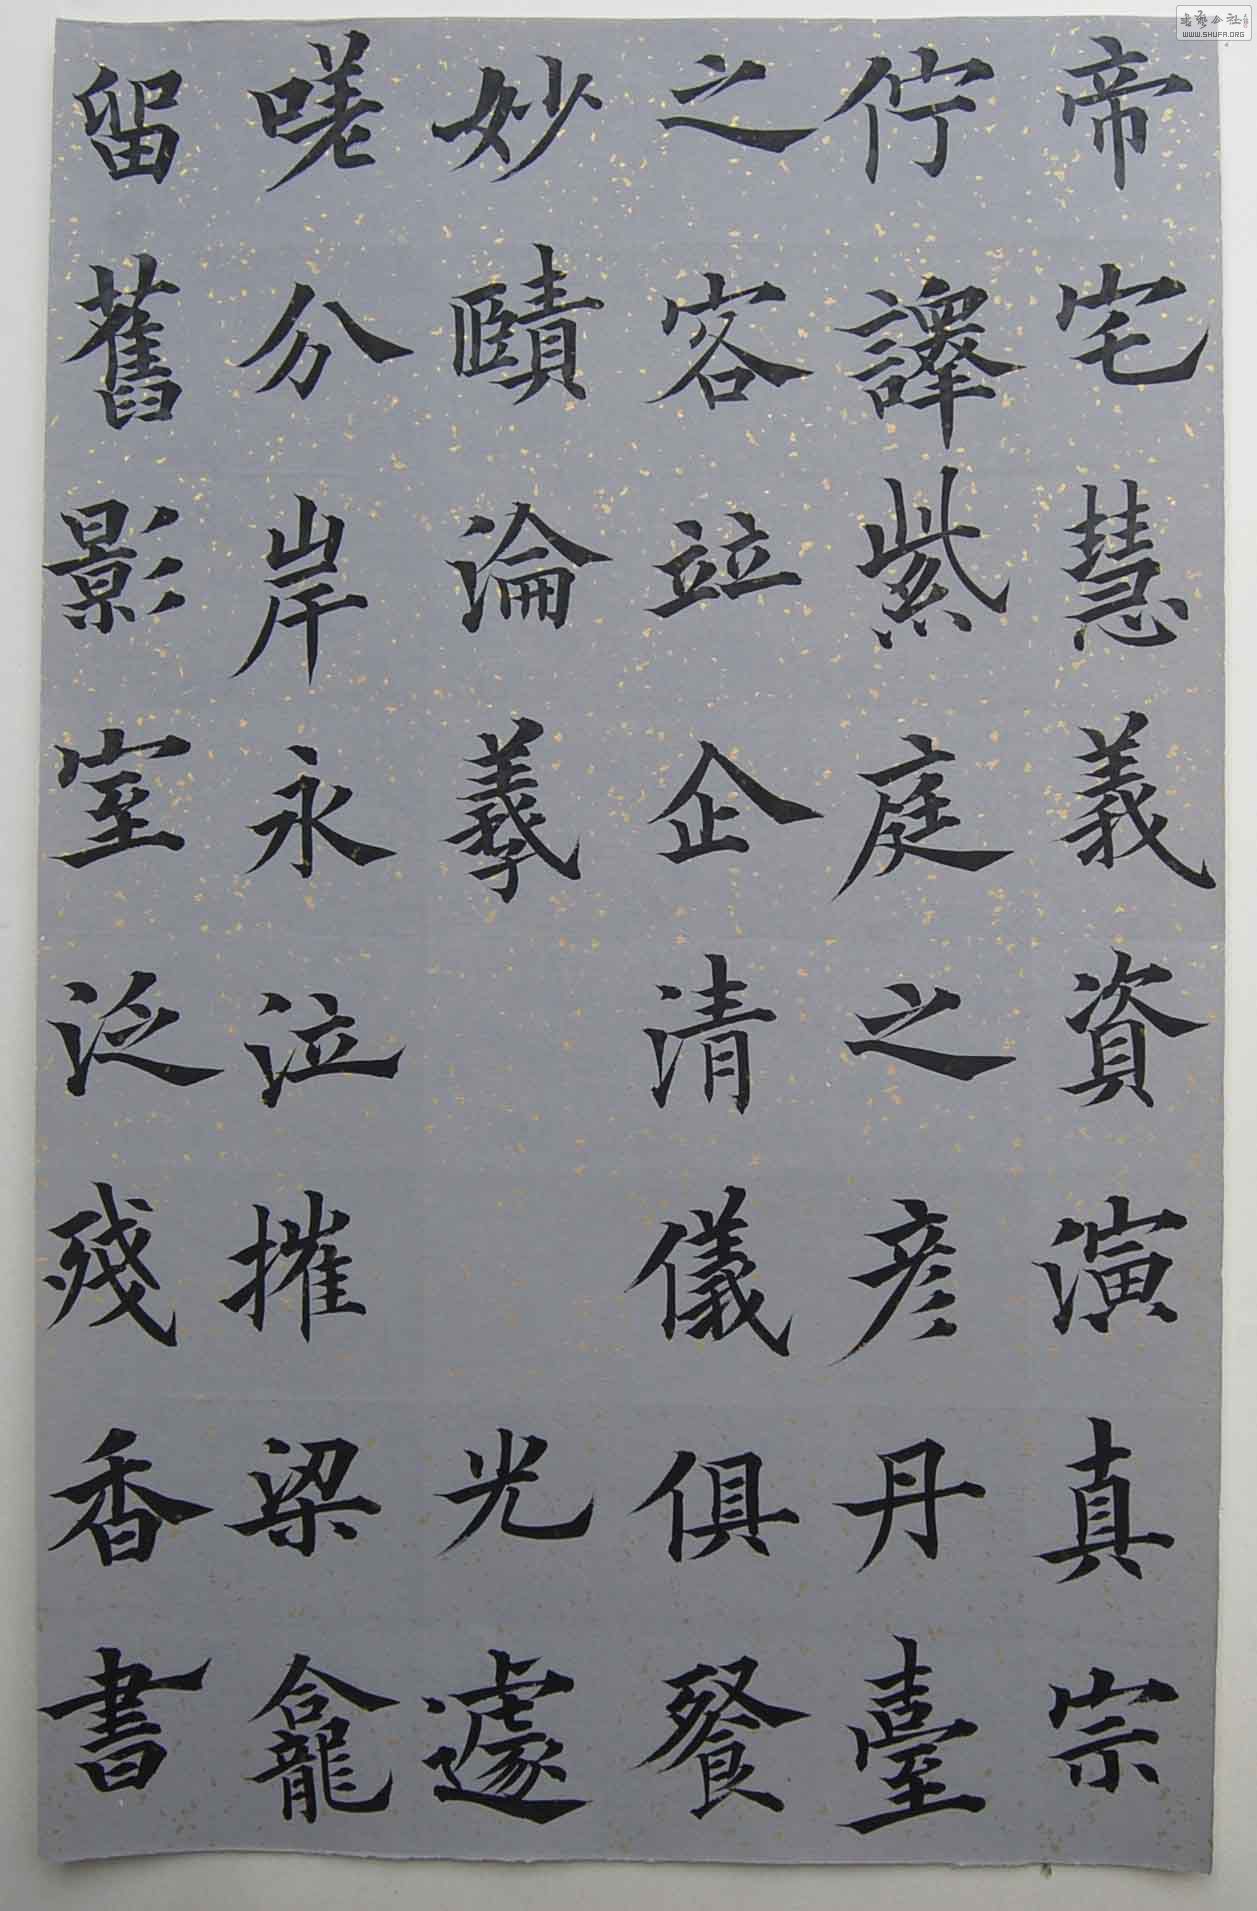 帝宅慧義資演真宗
佇譯紫庭之彥丹臺
之客竝企清儀俱餐
妙賾淪羲光遽
嗟分岸永泣摧梁龕
留舊影室泛殘香書
WWW.SHUFA.ORG